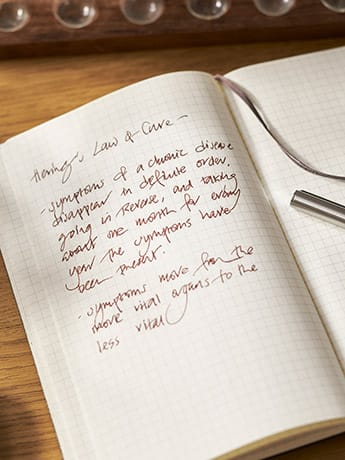 Hering's Law of Cure -
- Symptoms of a chronic disease
disappear in definite order,
going in reverse, and taking
about one month for every
year the symptoms have
been present.
- Symptoms move from the
more vital organs to the
less vital